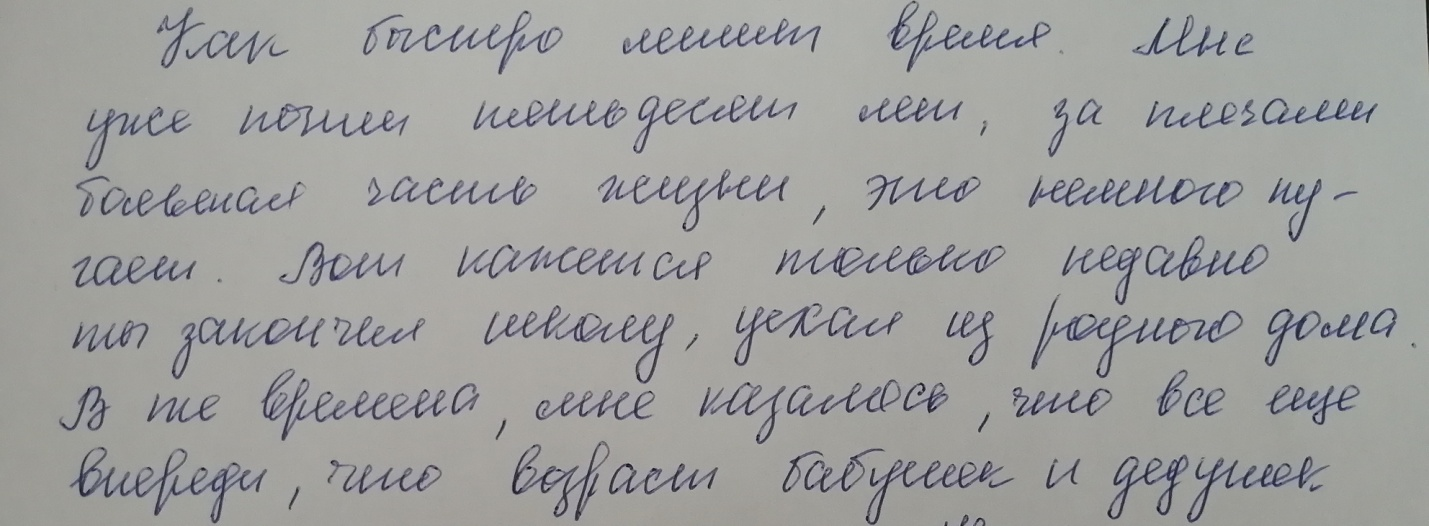 Как быстро летит время. Мне
уже почти шестьдесят лет, за плечами
большая часть жизни, это немного пу-
гает. Вот кажется только недавно
ты закончил школу, уехал из родного дома.
В те времена, мне казалось, что все еще
впереди, что возраст бабушек и дедушек